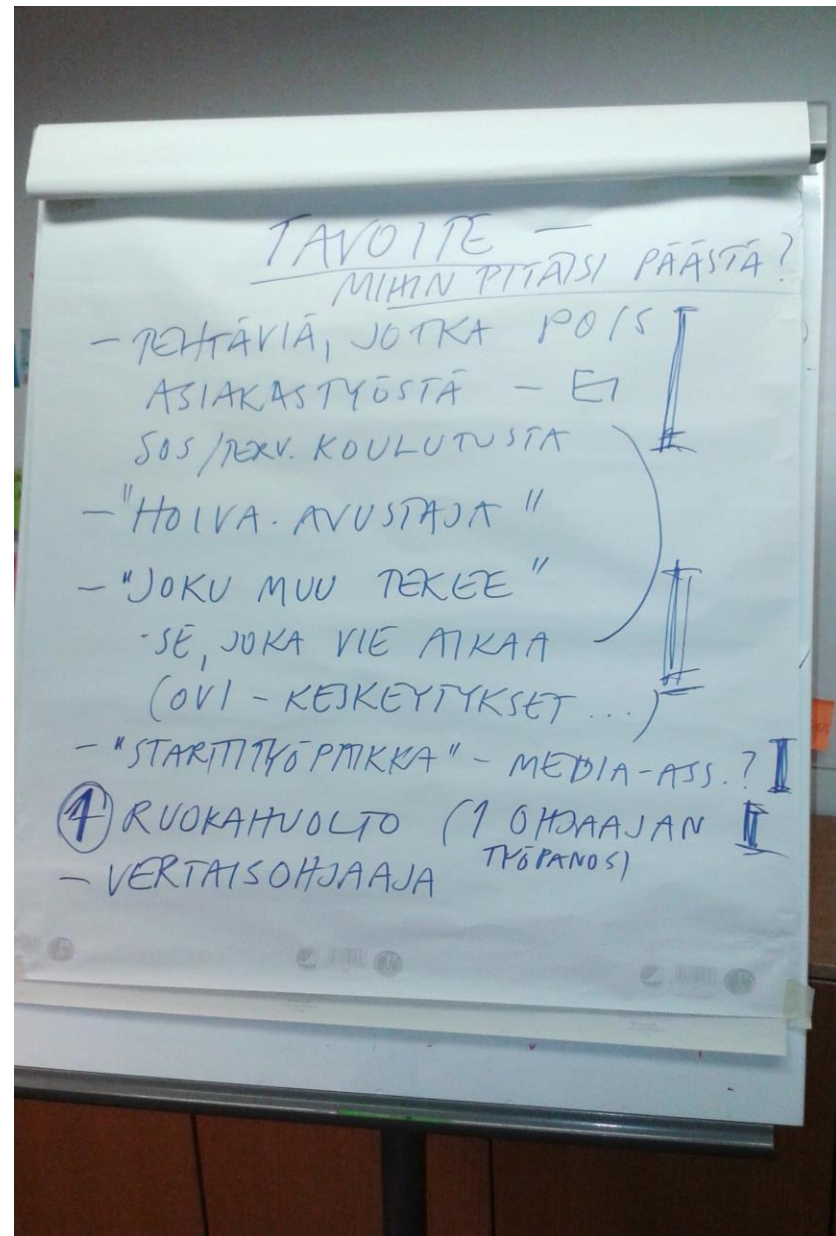 TAVOITE —
MIHIN PITÄISI PÄÄSTÄ?
- TEHTÄVIÄ, JOTKA POIS
ASIAKASTYÖSTÄ - EI
SOS/TERV. KOULUTUSTA
- "HOIVA-AVUSTAJA"
- "JOKU MUU TEKEE"
- SE, JOKA VIE AIKAA
(OVI - KESKEYTYKSET ...)
- "STARTTITYÖPAIKKA" - MEDIA-ASS.?
1 RUOKAHUOLTO (1 OHJAAJAN
TYÖPANOS)
- VERTAISOHJAAJA